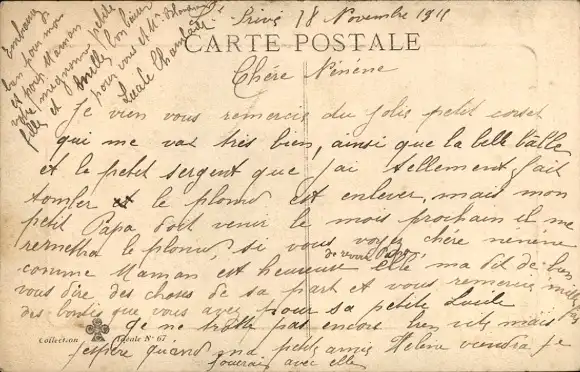 Privé 18 Novembre 1911
CARTE POSTALE
Chére Nénéne
Je vien vous remercie du jolis petit corset
qui me vat très bien, ainsi que la bell bâlle
et le petit sergent que j'ai tellement fait
tomber et le plomd est enlever, mais mon
petit Papa doit venir le mois prochain il me
remettra le plomd, si vous voyez chére nénéne
comme Maman est heureuse de revoir Papa elle m'a dit de bien
vous dire des choses de sa part et vous remercie mille fois
des bontés que vous avez pour sa petite Lucile
Je ne trotte pas encore bien vite mais
j'espére quand ma petite amie Hélène viendra je
jouerais avec elle
Embrassez
bien pour moi
et pour Maman
votre mignonne petite
fille et mille bonheur
pour vous et Mr
Lucile
Collection Idéale N° 67